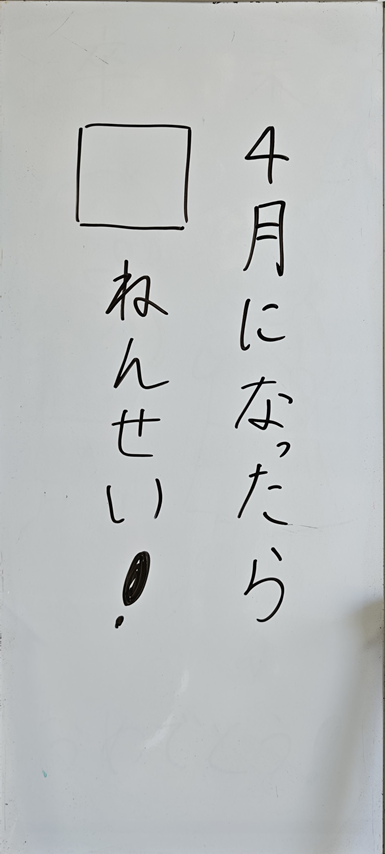 4月になったら
□ねんせい!